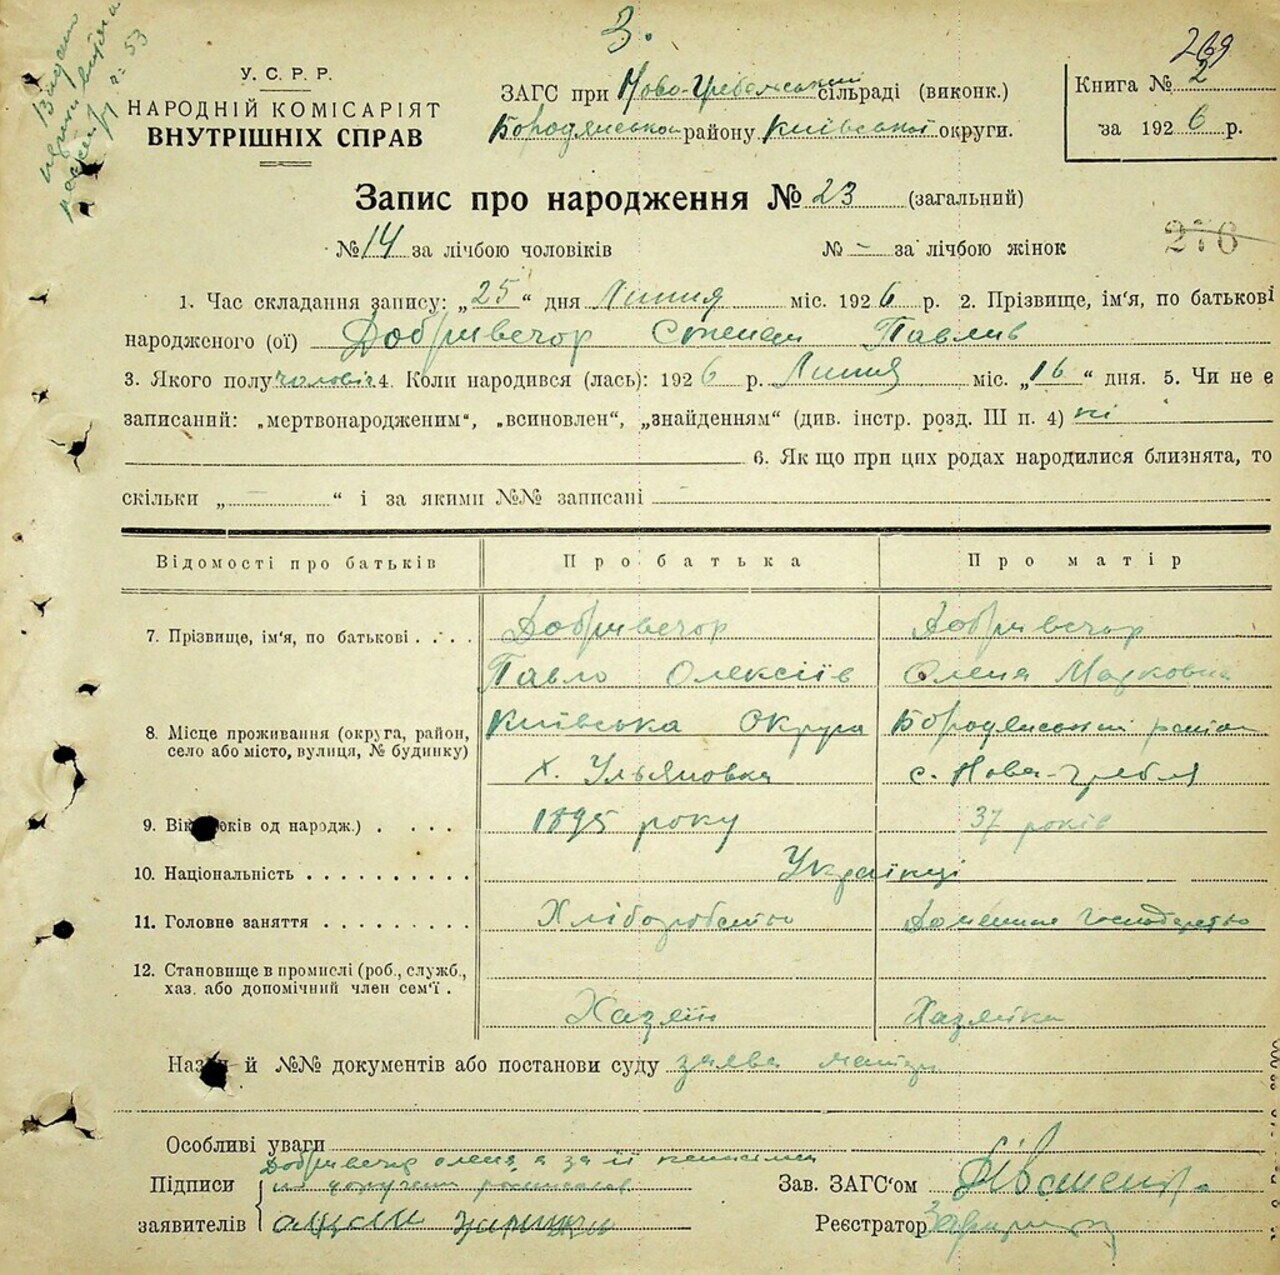 3.
269
У. С. Р. Р.
НАРОДНІЙ КОМІСАРІЯТ
ВНУТРІШНІХ СПРАВ
ЗАГС при Ново-Гребельський сільраді (виконк.)
Бородянського району Київської округи.
Книга № 2
за 1926 р.
Запис про народження № 23 (загальний)
№ 14 за лічбою чоловіків № – за лічбою жінок
276
1. Час складання запису: „25“ дня Липня міс. 1926 р. 2. Прізвище, ім'я, по батькові
народженого (ої) Добривечор Степан Павлив
3. Якого полу чоловіч. 4. Коли народився (лась): 1926 р. Липня міс. „16“ дня. 5. Чи не є
записаний: „мертвонародженим“, „всиновлен“, „знайденням“ (див. інстр. розд. III п. 4) ні
6. Як що при цих родах народилися близнята, то
скільки „ – “ і за якими №№ записані –
Відомості про батьків Про батька Про матір
7. Прізвище, ім'я, по батькові . . . . Добривечор Добривечор
Павло Олексіїв Олена Марковна
8. Місце проживання (округа, район, село або місто, вулиця, № будинку) Київська Округа Бородянський район
х. Ульяновка с. Нова-Гребля
9. Вік років од народж.) . . . . 1895 року 37 років
10. Національність . . . . . . . . . . Українці
11. Головне заняття . . . . . . . . . Хліборобство Домашнє господарство
12. Становище в промислі (роб., служб., хаз. або допомічний член сем'ї .
Хазяїн Хазяйка
Назви й №№ документів або постанови суду заява матери
Особливі уваги
Добривечор Олена а за її неписьмен
Підписи по доручен росписався
заявителів
Зав. ЗАГС'ом
Реєстратор